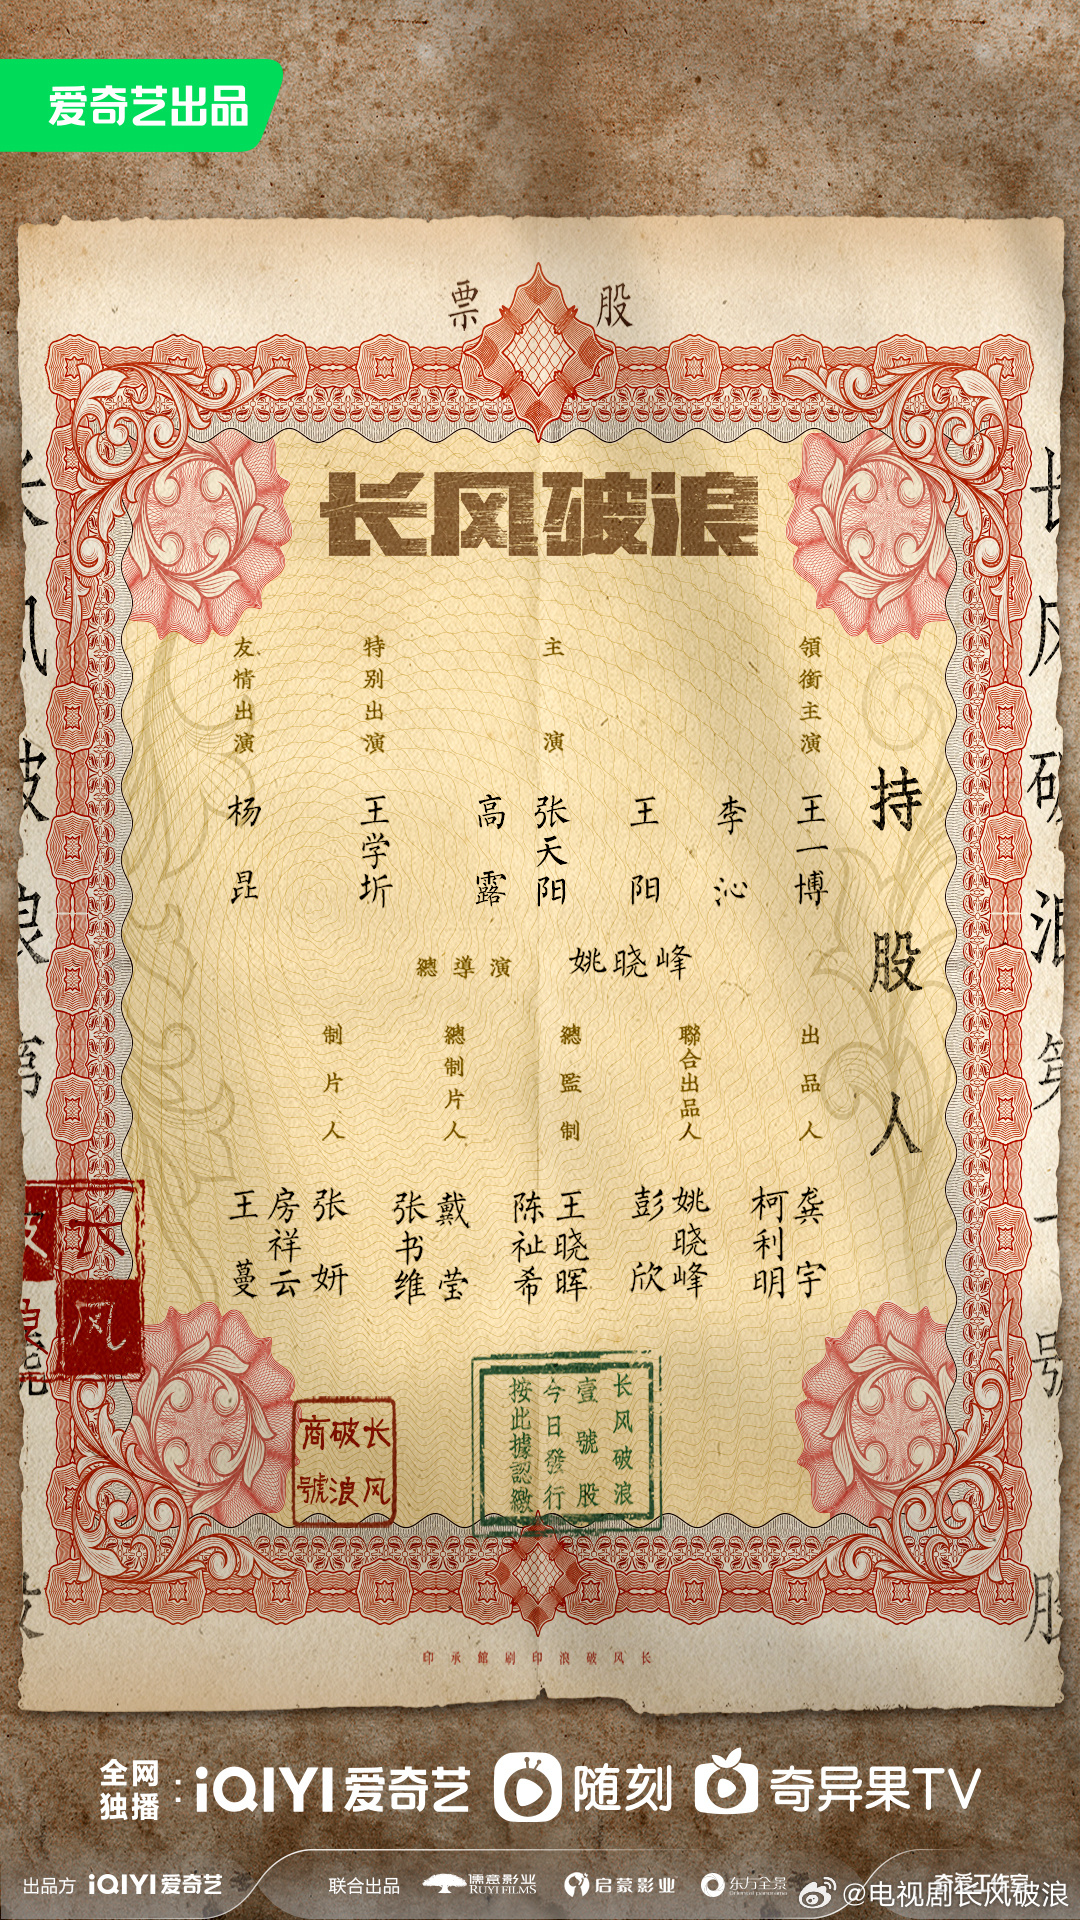 爱奇艺出品
股票
长风破浪
持股人
領銜主演
王一博
李沁
主演
王阳
张天阳
高露
特别出演
王学圻
友情出演
杨昆
總導演 姚晓峰
出品人
龚宇
柯利明
聯合出品人
姚晓峰
彭欣
總監制
王晓晖
陈祉希
總制片人
戴莹
张书维
制片人
张妍
房祥云
王蔓
长风破浪
壹號股
今日發行
按此據認繳
长风
破浪
商號
长风
破浪
长风破浪第一號股
长风破浪第
长风破浪印刷館承印
全网独播：iQIYI爱奇艺 随刻 奇异果TV
出品方 iQIYI爱奇艺 联合出品 儒意影业 RUYI FILMS 启蒙影业 东方全景 Oriental panorama
@电视剧长风破浪